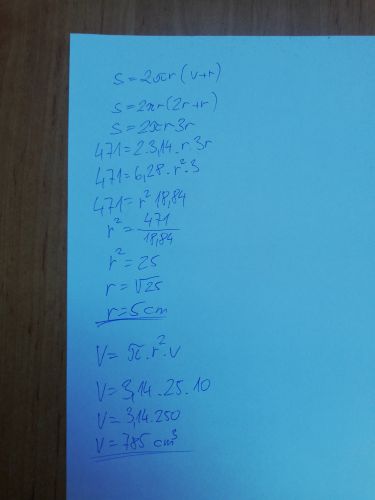 S = 2πr (v+r)
S = 2πr (2r+r)
S = 2πr 3r
471 = 2·3,14·r·3r
471 = 6,28·r²·3
471 = r² 18,84
r² = 471/18,84
r² = 25
r = √25
r = 5 cm
V = π·r²·v
V = 3,14·25·10
V = 3,14·250
V = 785 cm³